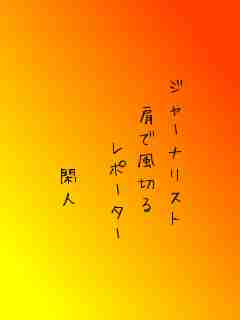 ジャーナリスト
肩で風切る
レポーター
閑人